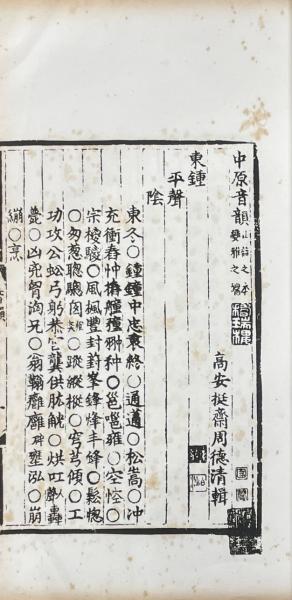 中原音韻 正語之本 變雅之端
高安挺齋周德清輯
東鍾
平聲
陰
東冬○鍾鐘中忠衷終○通蓪○松嵩○冲
充衝舂忡艟穜翀种○邕噰雍○空悾○
宗椶騣○風楓豐封葑峯鋒烽丰蜂○鬆惚
○匆葱聰驄囱○蹤縱樅○穹芎傾○工
功攻公蚣弓躬恭宮龔供肱觥○烘叿轟
薨○凶兇胷洶兄○翁癰壅泓○崩
繃○烹